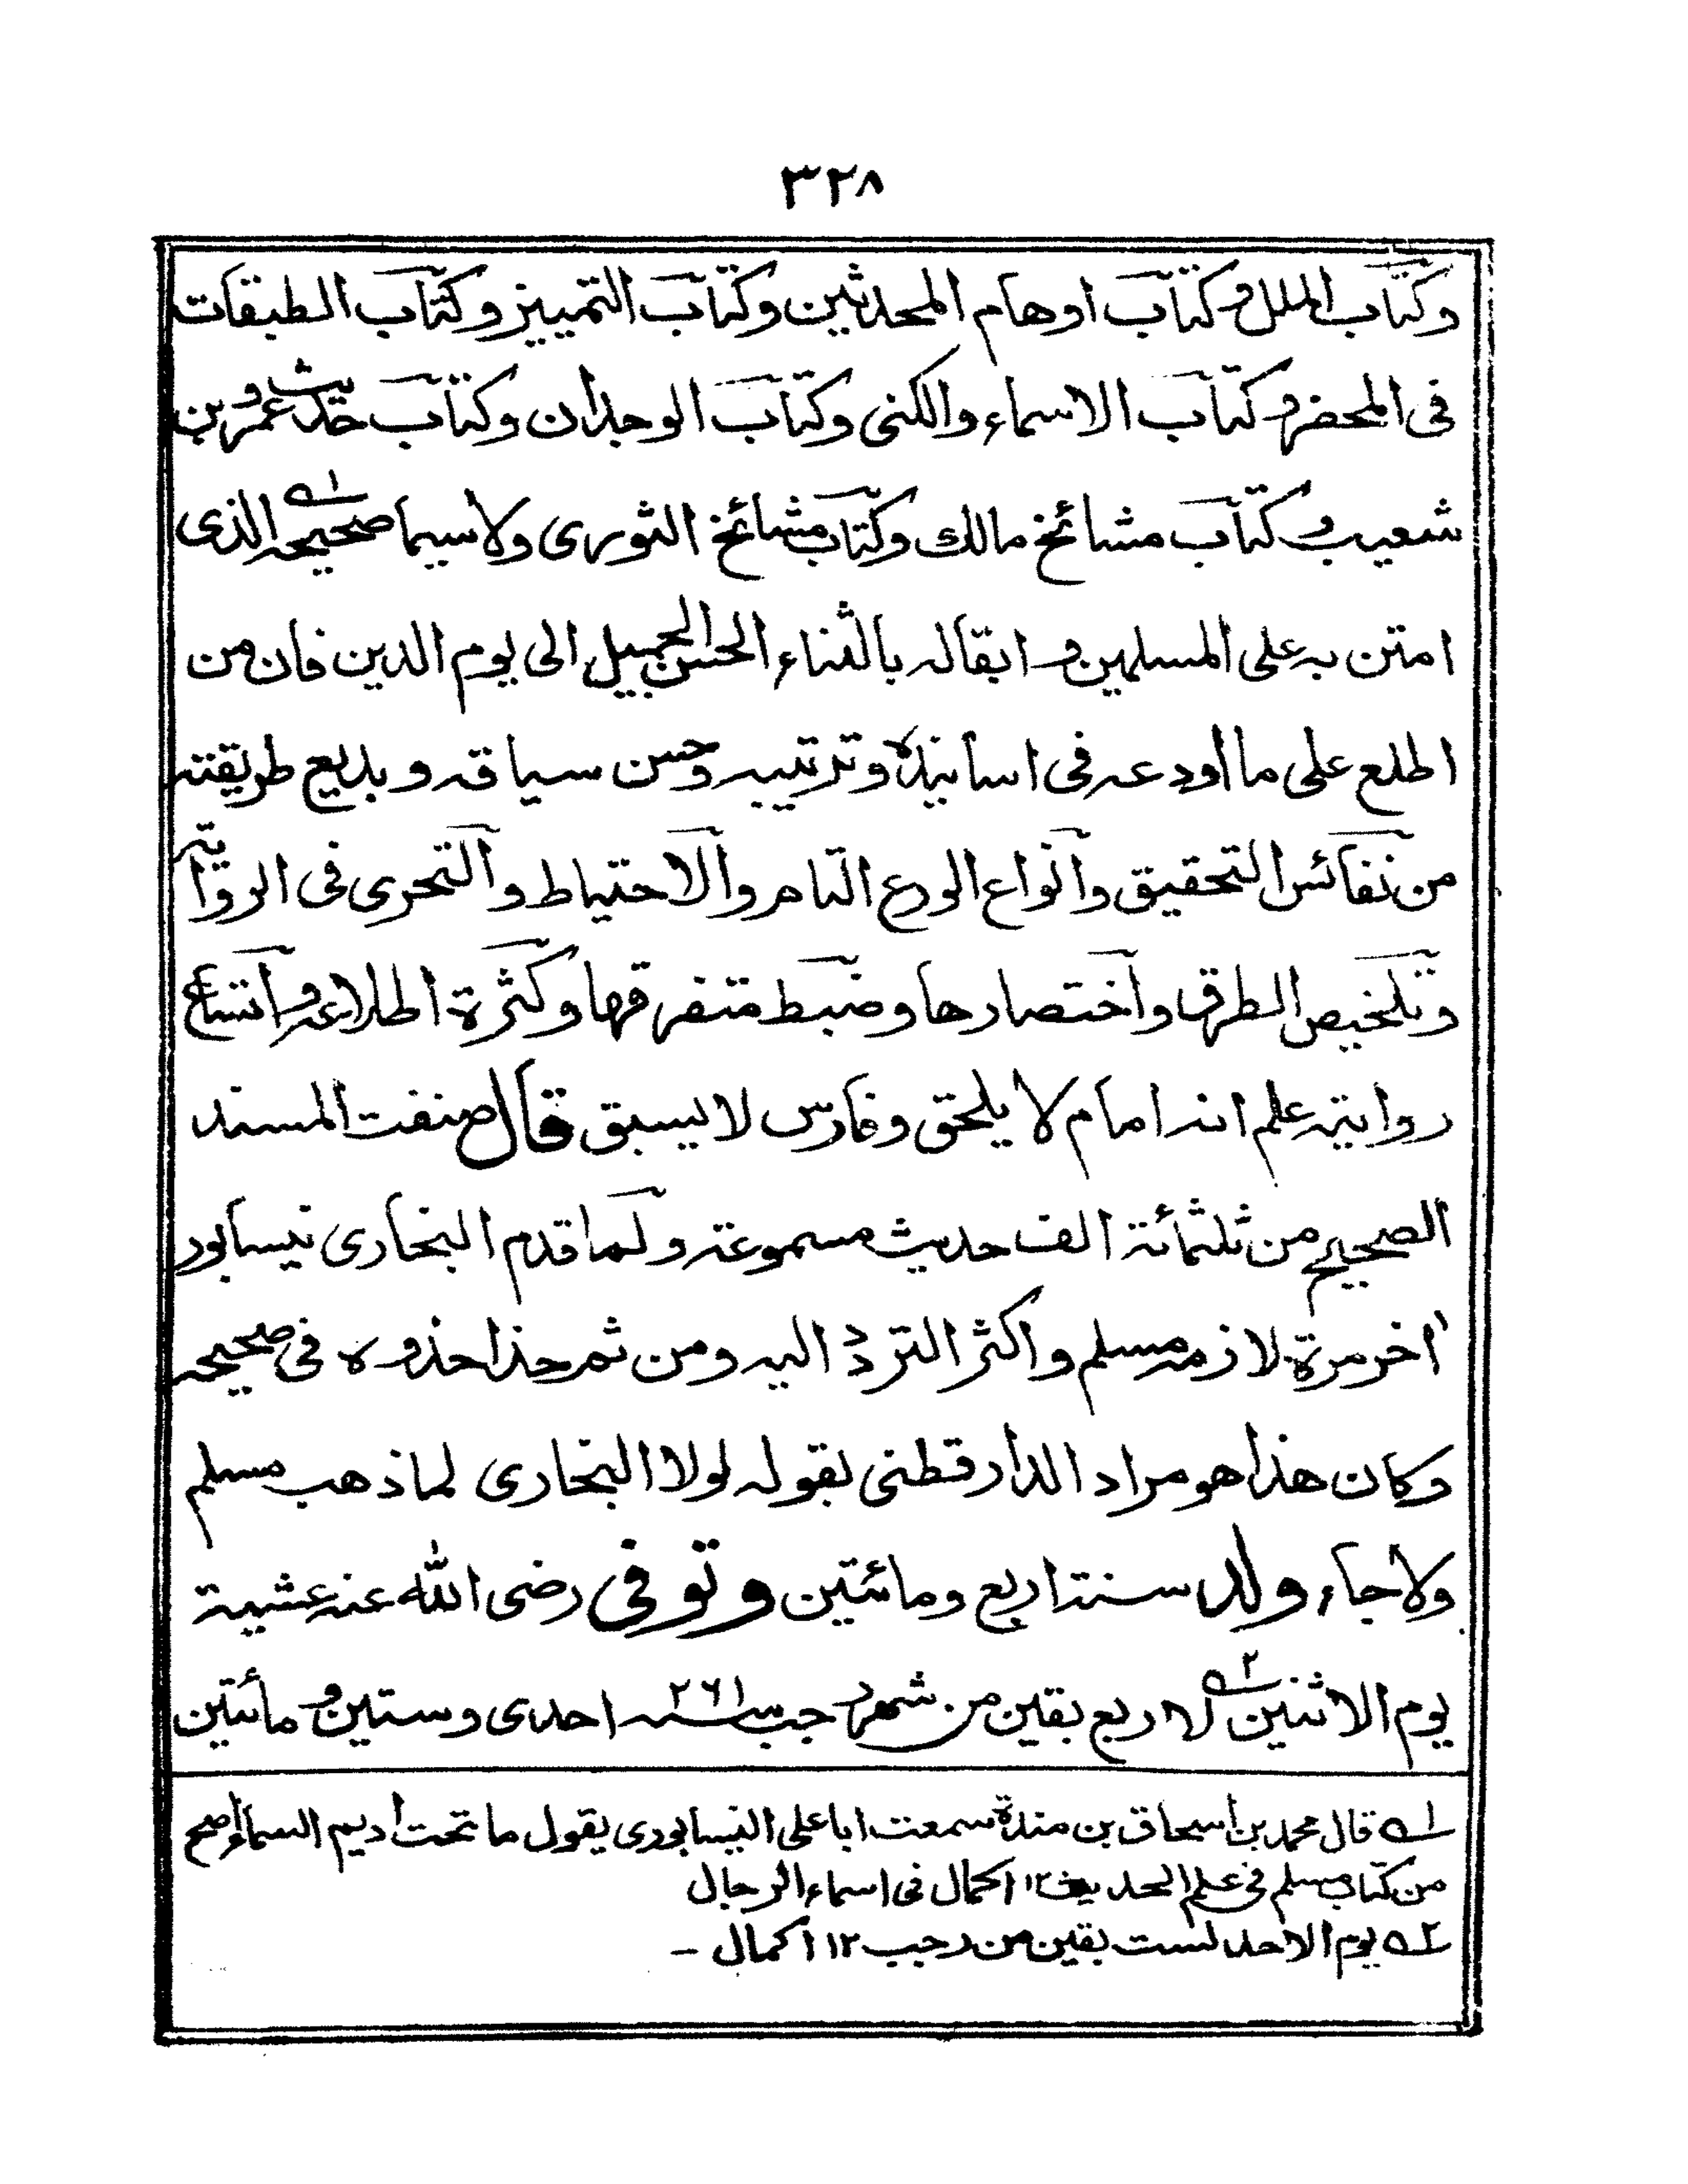 ٣٢٨
وكتاب الملل وكتاب اوهام المحدثين وكتاب التمييز وكتاب الطبقات
فى المحضر وكتاب الاسماء والكنى وكتاب الوحدان وكتاب حديث عمرو بن
شعيب وكتاب مشائخ مالك وكتاب مشائخ الثورى ولاسيما صحيحه ١ه الذى
امتن به على المسلمين وابقاله بالثناء الحسن الجميل الى يوم الدين فان من
اطلع على ما أودعه فى اسانيده وترتيبه وحسن سياقه وبديع طريقته
من نفائس التحقيق وانواع الورع التام والاحتياط والتحرى فى الرواية
وتلخيص الطرق واختصارها وضبط متفرقها وكثرة اطلاعه واتساع
روايته علم انه امام لا يلحق وفارس لا يسبق قال صنفت المسند
الصحيح من ثلثمائة الف حديث مسموعة ولما قدم البخارى نيسابور
اخر مرة لازمه مسلم واكثر التردد اليه ومن ثم حذا حذوه فى صحيحه
وكان هذا هو مراد الدارقطنى بقوله لولا البخارى لما ذهب مسلم
ولا جاء ولد سنة اربع ومائتين وتوفى رضى الله عنه عشية
يوم الاثنين ٢ه لاربع بقين من شهر رجب سنه ٢٦١ احدى وستين ومائتين
١ه قال محمد بن اسحاق بن مندة سمعت ابا على النيسابورى يقول ما تحت اديم السماء اصح
من كتاب مسلم فى علم الحديث ١٢ اكمال فى اسماء الرجال
٢ه يوم الاحد لست بقين من رجب ١٢ اكمال -